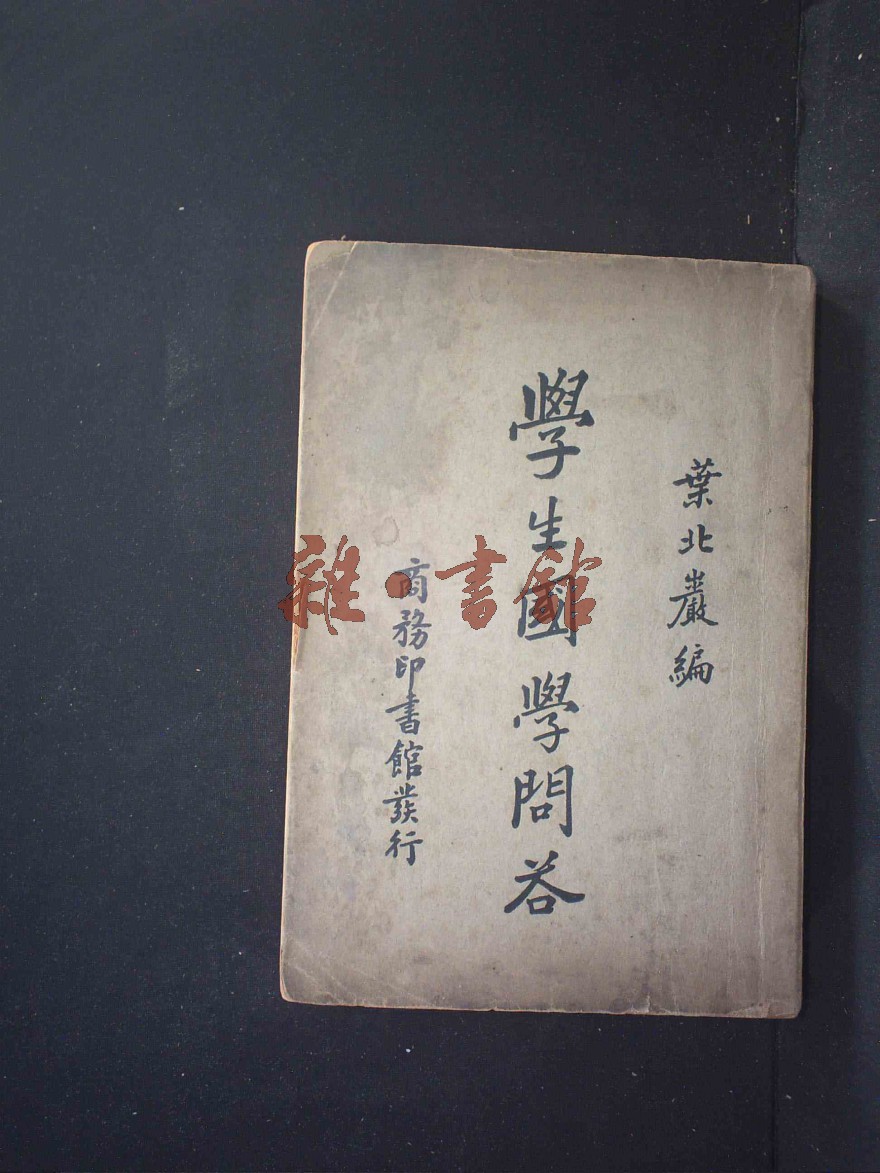 葉北巖編
學生國學問荅
商務印書館發行
雜·書館